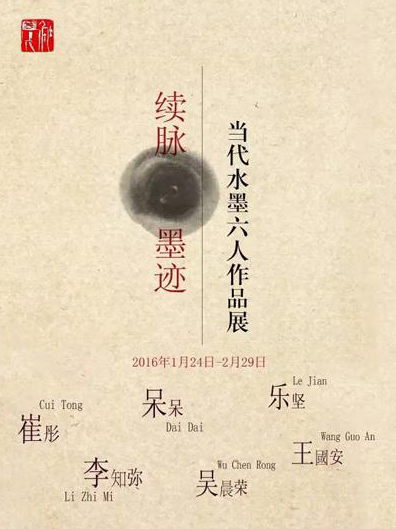 续脉
墨迹
当代水墨六人作品展
2016年1月24日-2月29日
Cui Tong
崔彤
呆呆
Dai Dai
Le Jian
乐坚
李知弥
Li Zhi Mi
Wu Chen Rong
吴晨荣
Wang Guo An
王國安